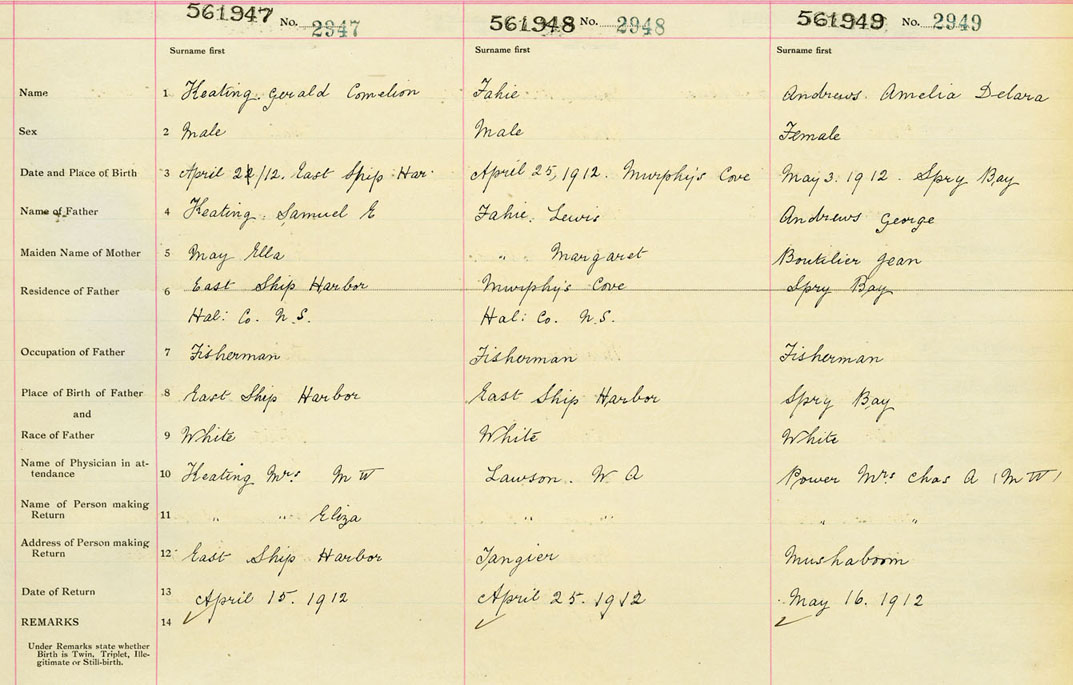 561947 No. 2947 561948 No. 2948 561949 No. 2949
Surname first Surname first Surname first
Name 1 Keating Gerald Cornelion Fahie Andrews Amelia Delara
Sex 2 Male Male Female
Date and Place of Birth 3 April /12. East Ship Har. April 25, 1912. Murphy's Cove May 3. 1912. Spry Bay
Name of Father 4 Keating, Samuel E Fahie, Lewis Andrews George
Maiden Name of Mother 5 May Ella " Margaret Boutelier Jean
Residence of Father 6 East Ship Harbor Murphy's Cove Spry Bay
Hal: Co. N.S. Hal: Co. N.S.
Occupation of Father 7 Fisherman Fisherman Fisherman
Place of Birth of Father 8 East Ship Harbor East Ship Harbor Spry Bay
and
Race of Father 9 White White White
Name of Physician in at-
tendance 10 Keating Mrs. M W Lawson. W A Power Mrs Chas A (M W)
Name of Person making
Return 11 " " Eliza " " " "
Address of Person making
Return 12 East Ship Harbor Tangier Mushaboom
Date of Return 13 April 15. 1912 April 25. 1912 May 16. 1912
REMARKS 14
Under Remarks state whether
Birth is Twin, Triplet, Ille-
gitimate or Still-birth.